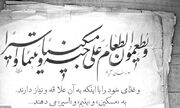 ويطعمون الطعام على حبه مسكينا ويتيما وأسيرا
و غذای خود را با اینکه به آن علاقه و نیاز دارند،
به مسکین و یتیم و اسیر می دهند.